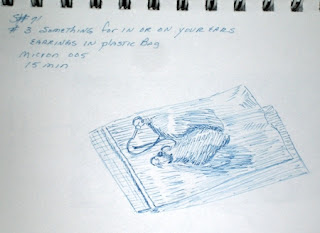 S# 91
# 3 Something for in or on your ears
Earrings in plastic Bag
micron 005
15 min